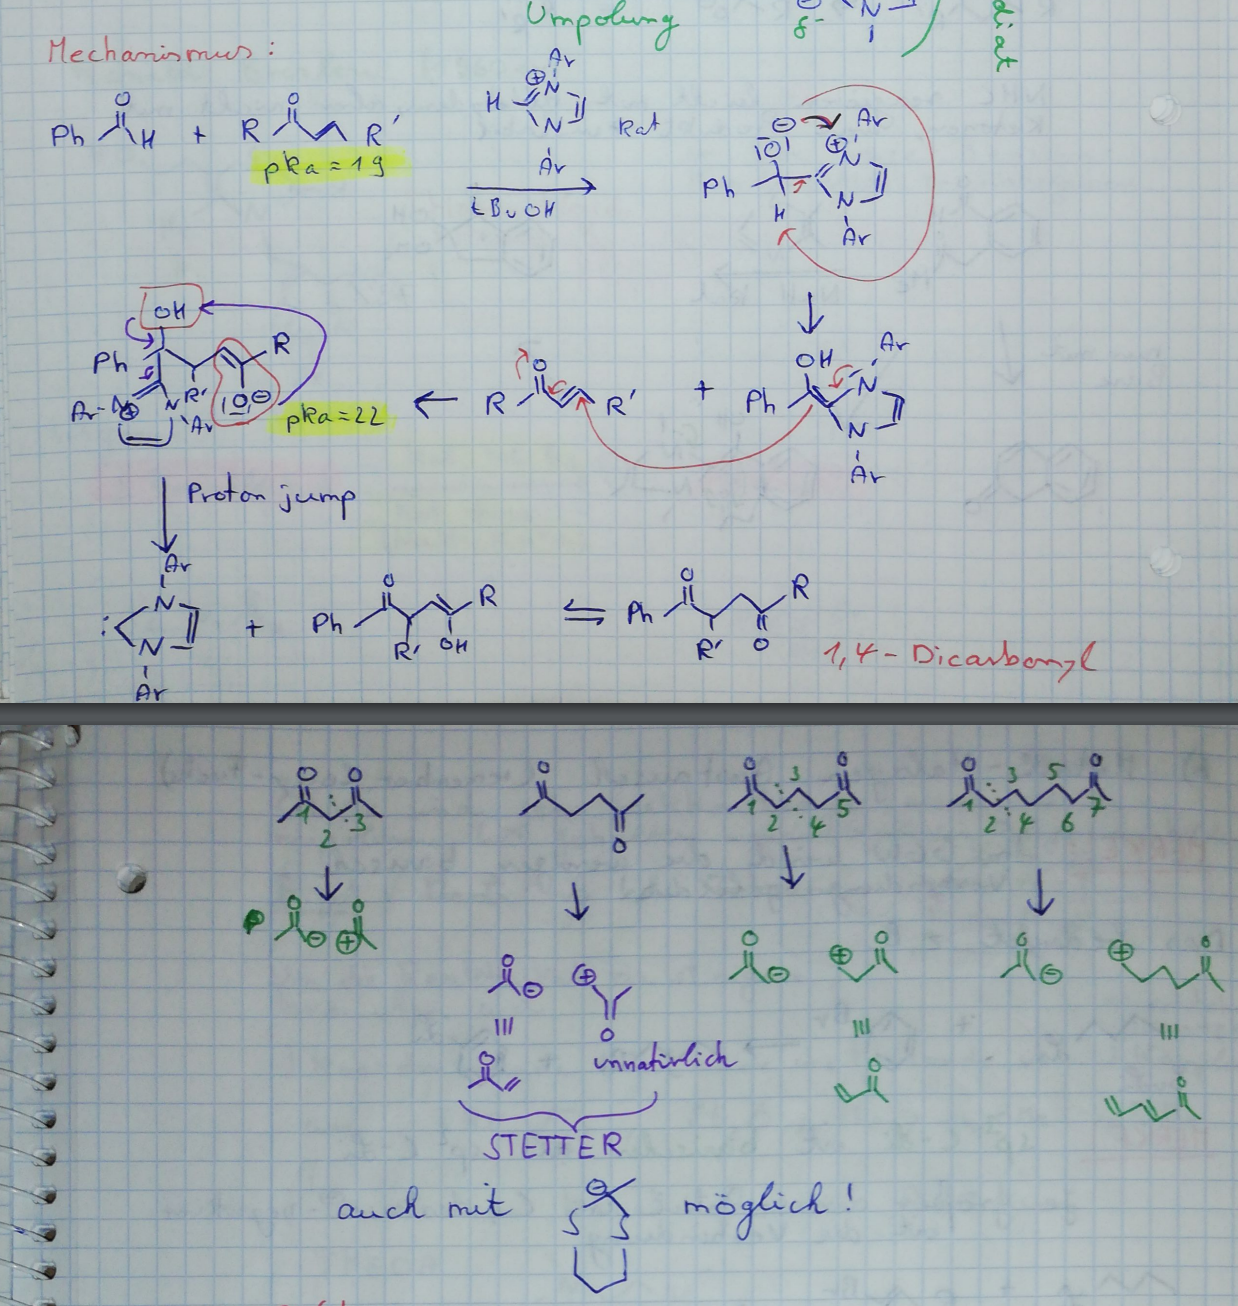 Umpolung
δ⁻ N
diat
Mechanismus:
O O ⊕ Ar
Ph H + R R' H N N Ar Kat
pka=19
tBuOH
⊖ |O| ⊕ Ar
Ph H N N Ar
OH
Ph R
Ar-N⊕ N R' |O|⊖
Ar
pka=22
←
O
R R' + OH Ar
Ph N
N
Ar
Proton jump
Ar
: N N + Ph O R' OH R ⇌ Ph O R' O R
Ar
1,4-Dicarbonyl
O O O O O O O
1 2 3
1 2 3 4 5
1 2 3 4 5 6 7
O ⊖ ⊕ O
O ⊖ ⊕ O
O ⊖ ⊕ O
O ⊖ ⊕ O
≡ unnatürlich
O
≡ O
≡ O
STETTER
auch mit ⊖ S S möglich!